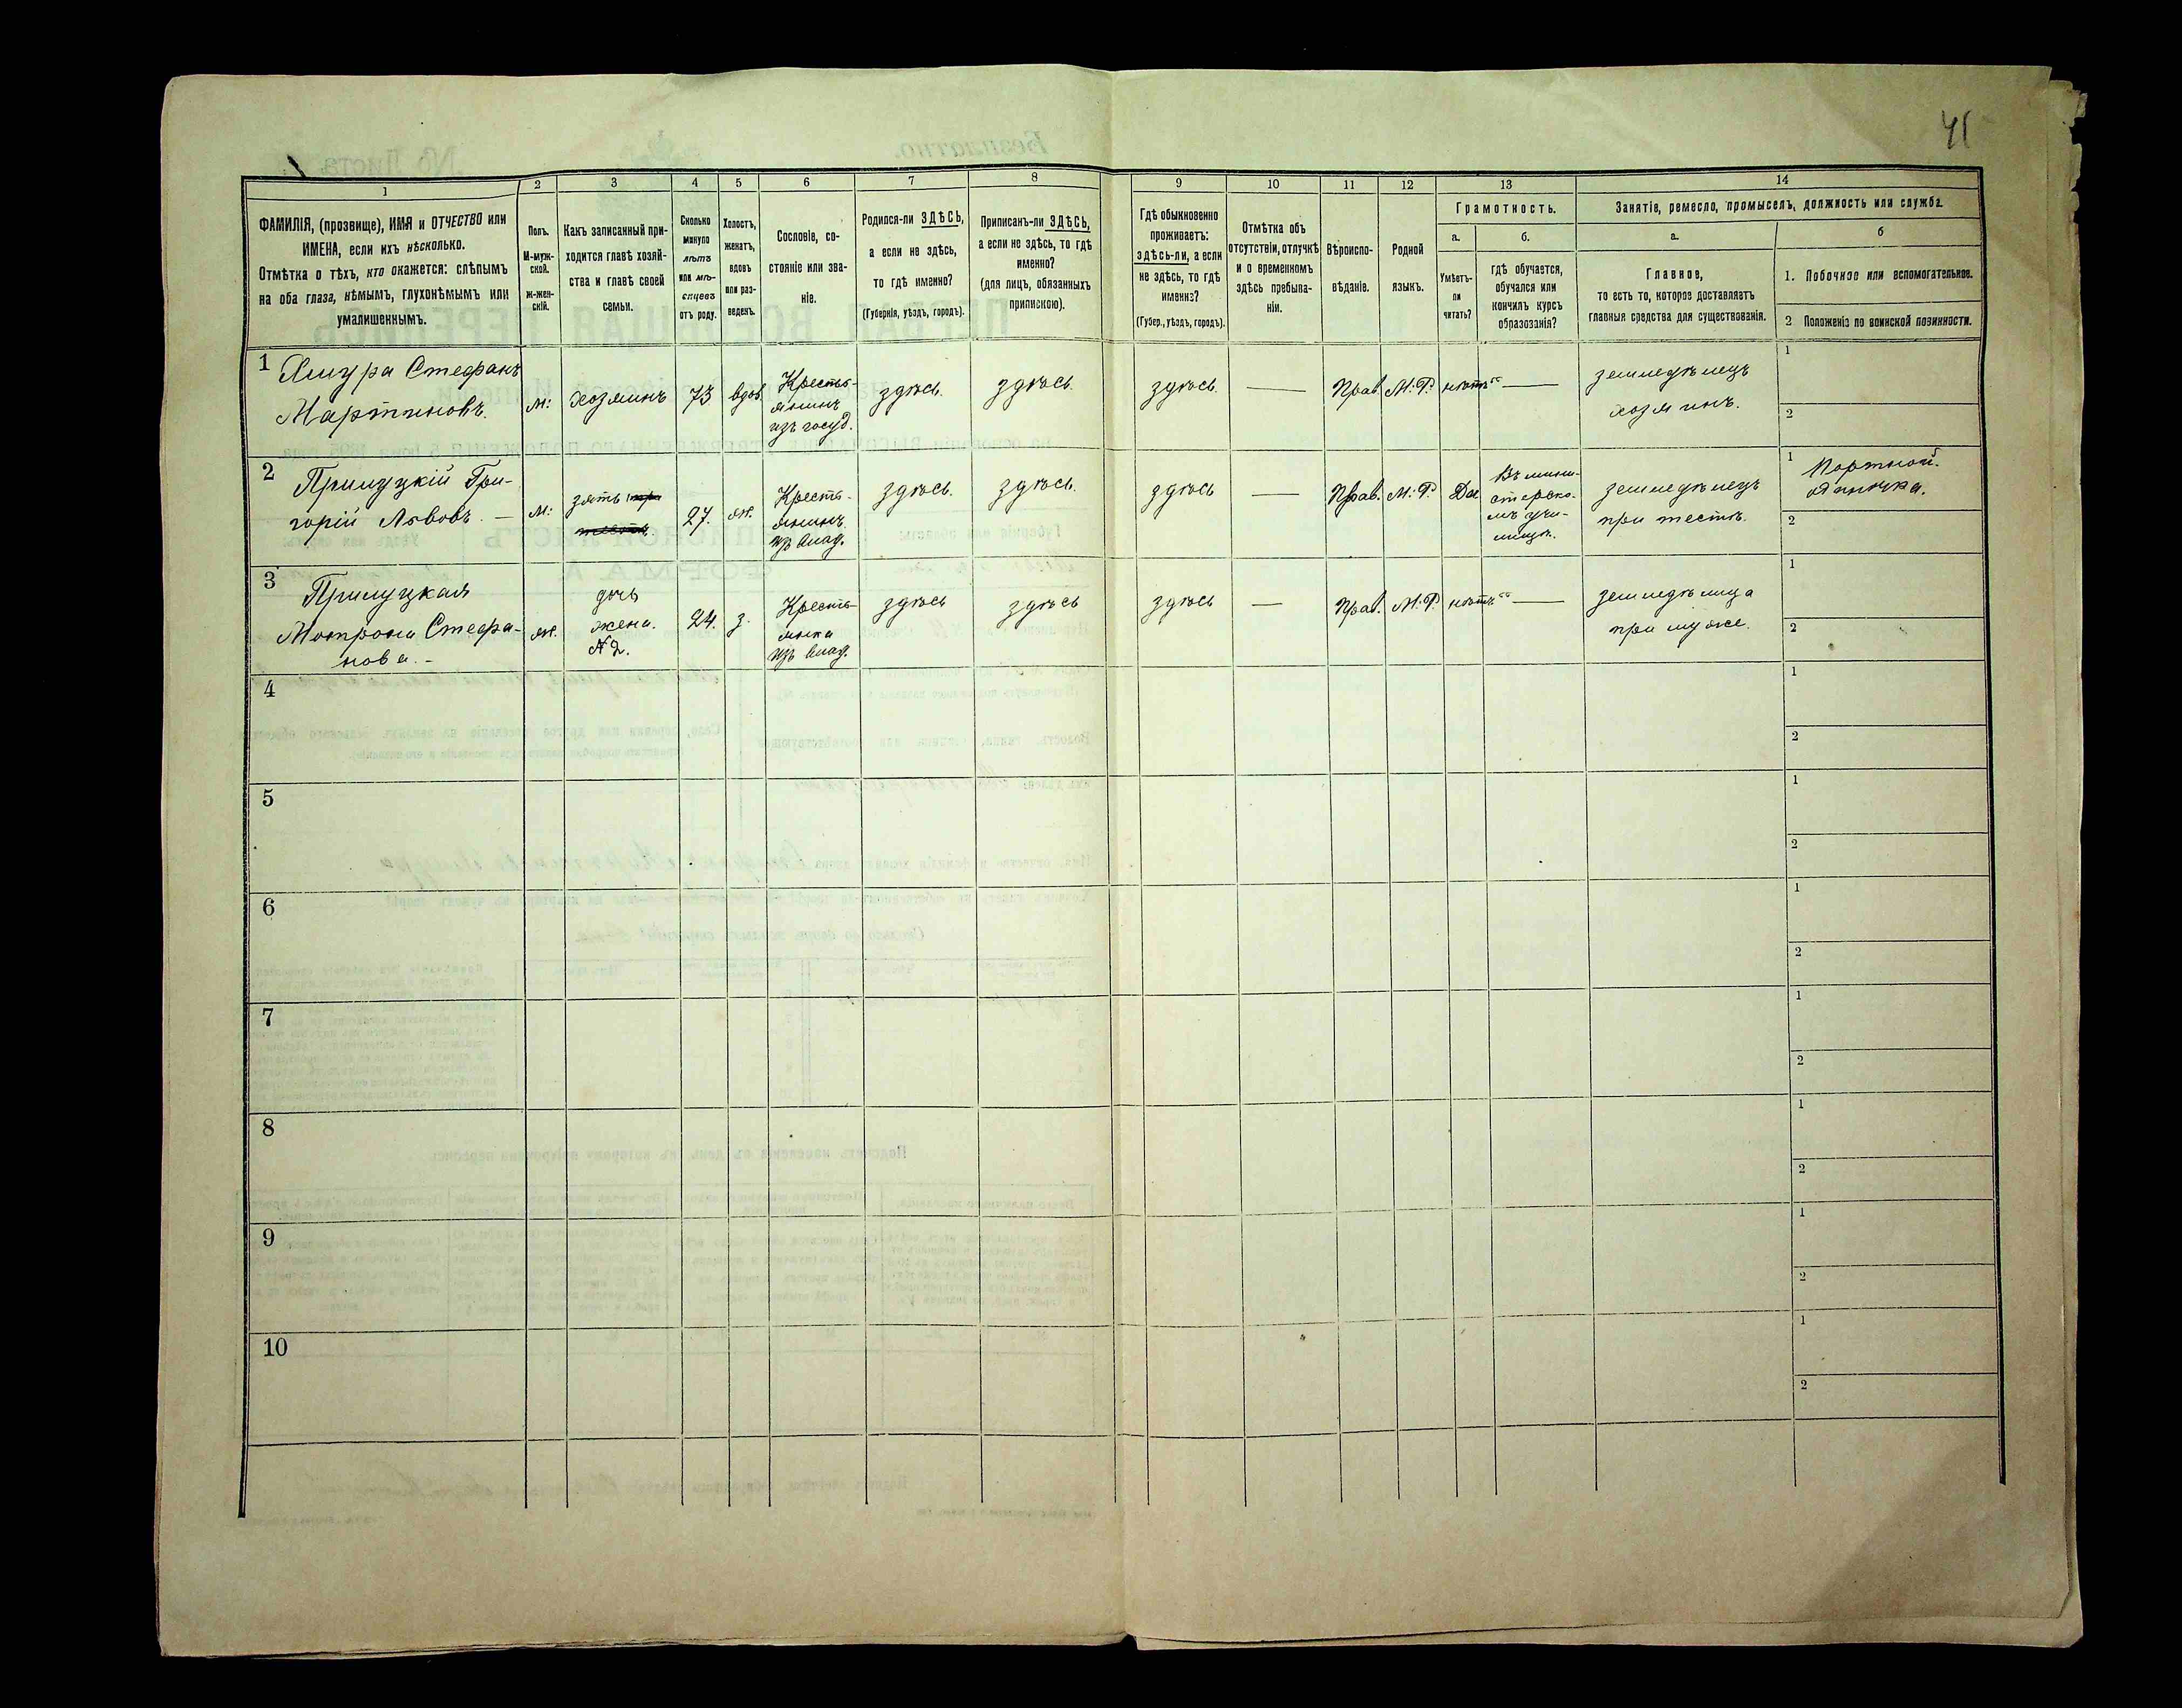 41
1
2
3
4
5
6
7
8
9
10
11
12
13
14
ФАМИЛІЯ, (прозвище), ИМЯ и ОТЧЕСТВО или
ИМЕНА, если ихъ нѣсколько.
Отмѣтка о тѣхъ, кто окажется: слѣпымъ
на оба глаза, нѣмымъ, глухонѣмымъ или
умалишеннымъ.
Полъ.
М-муж-
ской.
ж-жен-
скій.
Какъ записанный при-
ходится главѣ хозяй-
ства и главѣ своей
семьи.
Сколько
минуло
лѣтъ
или мѣ-
сяцевъ
отъ роду.
Холостъ,
женатъ,
вдовъ
или раз-
веденъ.
Сословіе, со-
стояніе или зва-
ніе.
Родился-ли ЗДѢСЬ,
а если не здѣсь,
то гдѣ именно?
(Губернія, уѣздъ, городъ).
Приписанъ-ли ЗДѢСЬ,
а если не здѣсь, то гдѣ
именно?
(для лицъ, обязанныхъ
припискою).
Гдѣ обыкновенно
проживаетъ:
здѣсь-ли, а если
не здѣсь, то гдѣ
именно?
(Губер., уѣздъ, городъ).
Отмѣтка объ
отсутствіи, отлучкѣ
и о временномъ
здѣсь пребыва-
ніи.
Вѣроиспо-
вѣданіе.
Родной
языкъ.
Грамотность.
а.
Умѣетъ-
ли
читать?
б.
гдѣ обучается,
обучался или
кончилъ курсъ
образованія?
Занятіе, ремесло, промыселъ, должность или служба.
а.
Главное,
то есть то, которое доставляетъ
главныя средства для существованія.
б
1. Побочное или вспомогательное.
2 Положеніе по воинской повинности.
1
Стефанъ
Мартиновъ.
м:
хозяинъ
73
вдов.
Крестья-
янинъ
изъ госуд.
здѣсь.
здѣсь.
здѣсь.
—
Прав.
М.Р.
нѣтъ
—
земледѣлецъ
хозяинъ.
1
2
2
Прилуцкій Гри-
горій Львовъ. —
м:
зять при
тестѣ.
27.
ж.
Кресть-
янинъ
изъ влад.
здѣсь.
здѣсь.
здѣсь
—
Прав.
М.Р.
Да
Въ мини-
стерско-
мъ учи-
лищѣ.
земледѣлецъ
при тестѣ.
1
Портной.
одиночка.
2
3
Прилуцкая
Мотрона Стефа-
нова. -
ж.
дочь
жена.
№2.
24.
з.
Кресть-
янка
изъ влад.
здѣсь
здѣсь
здѣсь
—
Прав.
М.Р.
нѣтъ
—
земледѣлица
при мужѣ.
1
2
4
1
2
5
1
2
6
1
2
7
1
2
8
1
2
9
1
2
10
1
2